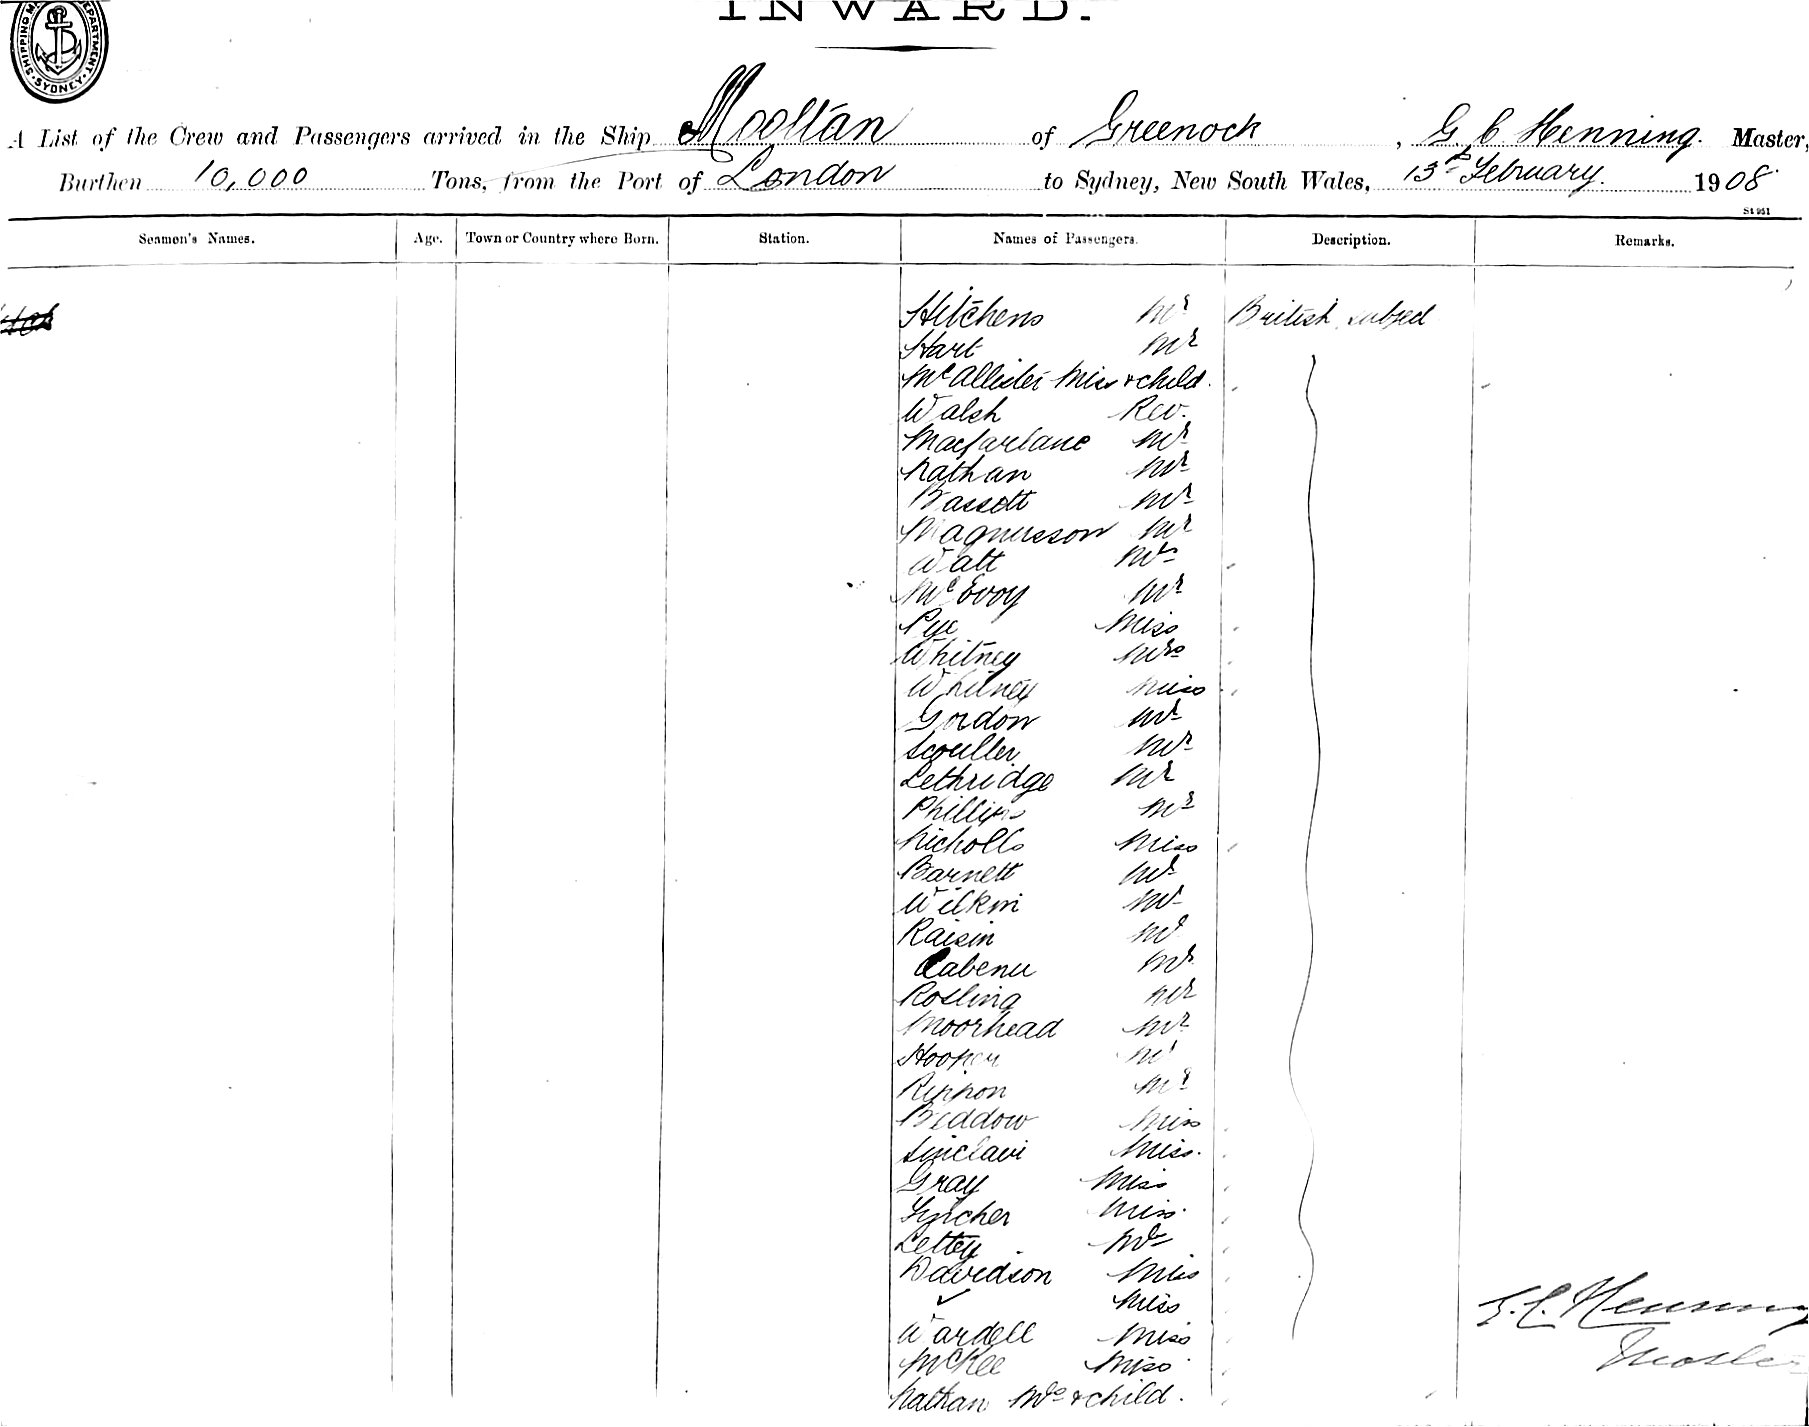 INWARD.
SHIPPING MA DEPARTMENT. SYDNEY
A List of the Crew and Passengers arrived in the Ship Mooltan of Greenock, G C Henning. Master,
Burthen 10,000 Tons, from the Port of London to Sydney, New South Wales, 13th February. 1908
St 951
Seamen's Names. Age. Town or Country where Born. Station. Names of Passengers. Description. Remarks.
Hitchens Mr British subject
Hart Mr
McAllister Miss & child.
Walsh Rev.
Macfarlane Mr
Nathan Mr
Bassett Mr
Magnusson Mr
Watt Mrs
McEvoy Mr
Pye Miss
Whitney Mrs
Whitney Miss
Gordon Mr
Scouller Mr
Lethridge Mr
Phillips Mr
Nicholls Miss
Barnett Mr
Wilkin Mr
Raisin Mr
Cabenu Mr
Rosling Mr
Moorhead Mr
Hooper Mr
Rippon Mr
Beddow Miss
Sinclair Miss.
Gray Miss
Fincher Miss.
Lettey Mrs
Davidson Miss
Miss
Wardell Miss
McKee Miss
Nathan Mrs & child.
G. C. Henning
Master